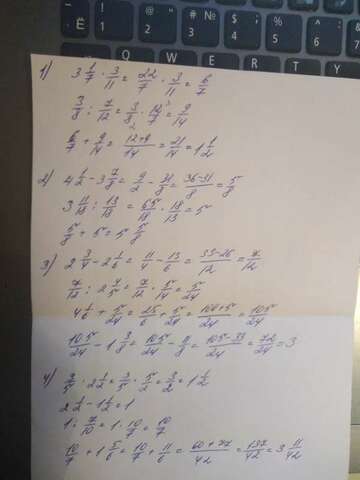 1) 3 1/7 · 3/11 = 22/7 · 3/11 = 6/7
3/8 : 7/12 = 3/8 · 12/7 = 9/14
6/7 + 9/14 = (12+9)/14 = 21/14 = 1 1/2
2) 4 1/2 - 3 7/8 = 9/2 - 31/8 = (36-31)/8 = 5/8
3 11/18 : 13/18 = 65/18 · 18/13 = 5
5/8 + 5 = 5 5/8
3) 2 3/4 - 2 1/6 = 11/4 - 13/6 = (33-26)/12 = 7/12
7/12 : 2 4/5 = 7/12 · 5/14 = 5/24
4 1/6 + 5/24 = 25/6 + 5/24 = (100+5)/24 = 105/24
105/24 - 1 3/8 = 105/24 - 11/8 = (105-33)/24 = 72/24 = 3
4) 3/5 · 2 1/2 = 3/5 · 5/2 = 3/2 = 1 1/2
1 : 7/10 = 1 · 10/7 = 10/7
10/7 + 1 5/6 = 10/7 + 11/6 = (60+77)/42 = 137/42 = 3 11/42